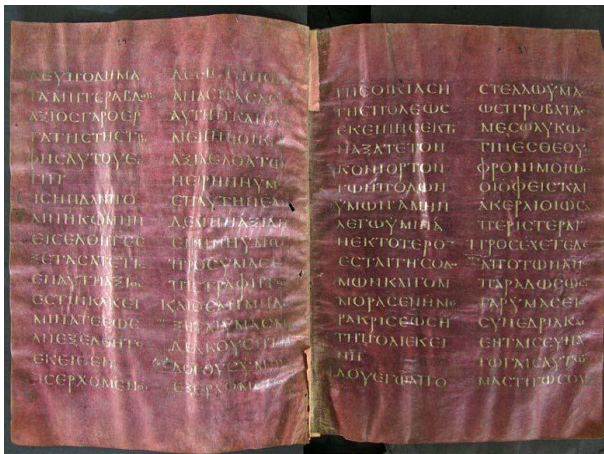 ΔΕΥΠΟΔΗΜΑ
ΤΑΜΗΤΕΡΑΒΔΟΥ
ΑΞΙΟϹΓΑΡΟΕΡ
ΓΑΤΗϹΤΗϹΤΡ
ΦΗϹΑΥΤΟΥΕϹ
ΤΙΝ
ΛΙΝΗΚΩΜΗΝ
ΕΙϹΕΛΘΗΤΕΕ
ΞΕΤΑϹΑΤΕΤΙϹ
ΕΝΑΥΤΗΑΞΙΟϹ
ΕϹΤΙΝΚΑΚΕΙ
ΜΙΝΑΤΕΕΩϹ
ΑΝΕΞΕΛΘΗΤΕ
ΕΚΕΙΘΕΝ
ΕΙϹΕΡΧΟΜΕΝΟΙ
ΜΕΝΗΗΟΙΚΙ
ΑΞΙΑΕΛΘΑΤΩ
ΗΕΙΡΗΝΗΥΜ
ΕΠΑΥΤΗΝΕΑ
ΔΕΜΗΗΑΞΙΑΗ
ΕΙΡΗΝΗΥΜΩ
ΠΡΟϹΥΜΑϹΕ
ΠΙϹΤΡΑΦΗΤΩ
ΚΑΙΟϹΕΑΝΜΗΔΕ
ΞΗΤΑΙΥΜΑϹΜ
ΔΕΑΚΟΥϹΗΤ
ΛΟΓΟΥϹΥΜΩ
ΕΞΕΡΧΟΜΕ
ΤΗϹΟΙΚΙΑϹΗ
ΤΗϹΠΟΛΕΩϹ
ΕΚΕΙΝΗϹΕΚΤΙ
ΝΑΞΑΤΕΤΟΝ
ΚΟΝΙΟΡΤΟΝ
ΤΩΝΠΟΔΩΝ
ΥΜΩΝΑΜΗΝ
ΛΕΓΩΥΜΙΝΑ
ΝΕΚΤΟΤΕΡΟ
ΕϹΤΑΙΓΗϹΟΔΟ
ΜΩΝΚΑΙΓΟΜ
ΜΟΡΑϹΕΝΗΜΕ
ΡΑΚΡΙϹΕΩϹΗ
ΤΗΠΟΛΙΕΚΕΙ
ΝΗ
ΙΔΟΥΕΓΩΑΠΟ
ϹΤΕΛΛΩΥΜΑ
ΩϹΠΡΟΒΑΤΑΕ
ΜΕϹΩΛΥΚΩ
ΓΙΝΕϹΘΕΟΥ
ΦΡΟΝΙΜΟΙΩ
ΟΙΟΦΕΙϹΚΑΙ
ΑΚΕΡΑΙΟΙΩϹ
ΠΕΡΙϹΤΕΡΑΙ
ΠΡΟϹΕΧΕΤΕΔΕ
ΑΠΟΤΩΝΑΝ
ΠΑΡΑΔΩϹΟ
ΓΑΡΥΜΑϹΕΙ
ϹΥΝΕΔΡΙΑΚΑ
ΕΝΤΑΙϹϹΥΝΑ
ΓΩΓΑΙϹΑΥΤΩ
ΜΑϹΤΙΓΩϹΟΥ